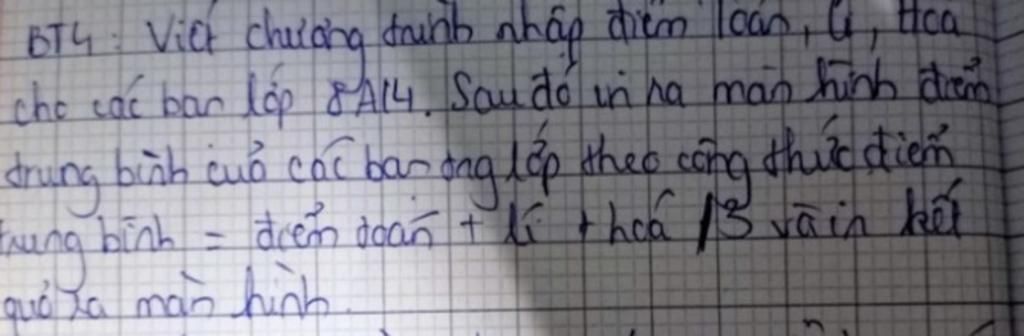 BT4: Viết chương trình nhập điểm Toán, Lí, Hoá
cho các bạn lớp 8A14. Sau đó in ra màn hình điểm
trung bình của các bạn trong lớp theo công thức điểm
trung bình = điểm toán + lí + hoá /3 và in kết
quả ra màn hình.